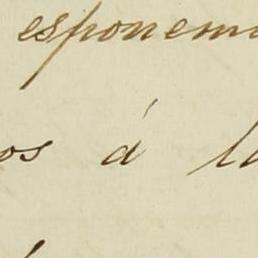 esponem
os á la